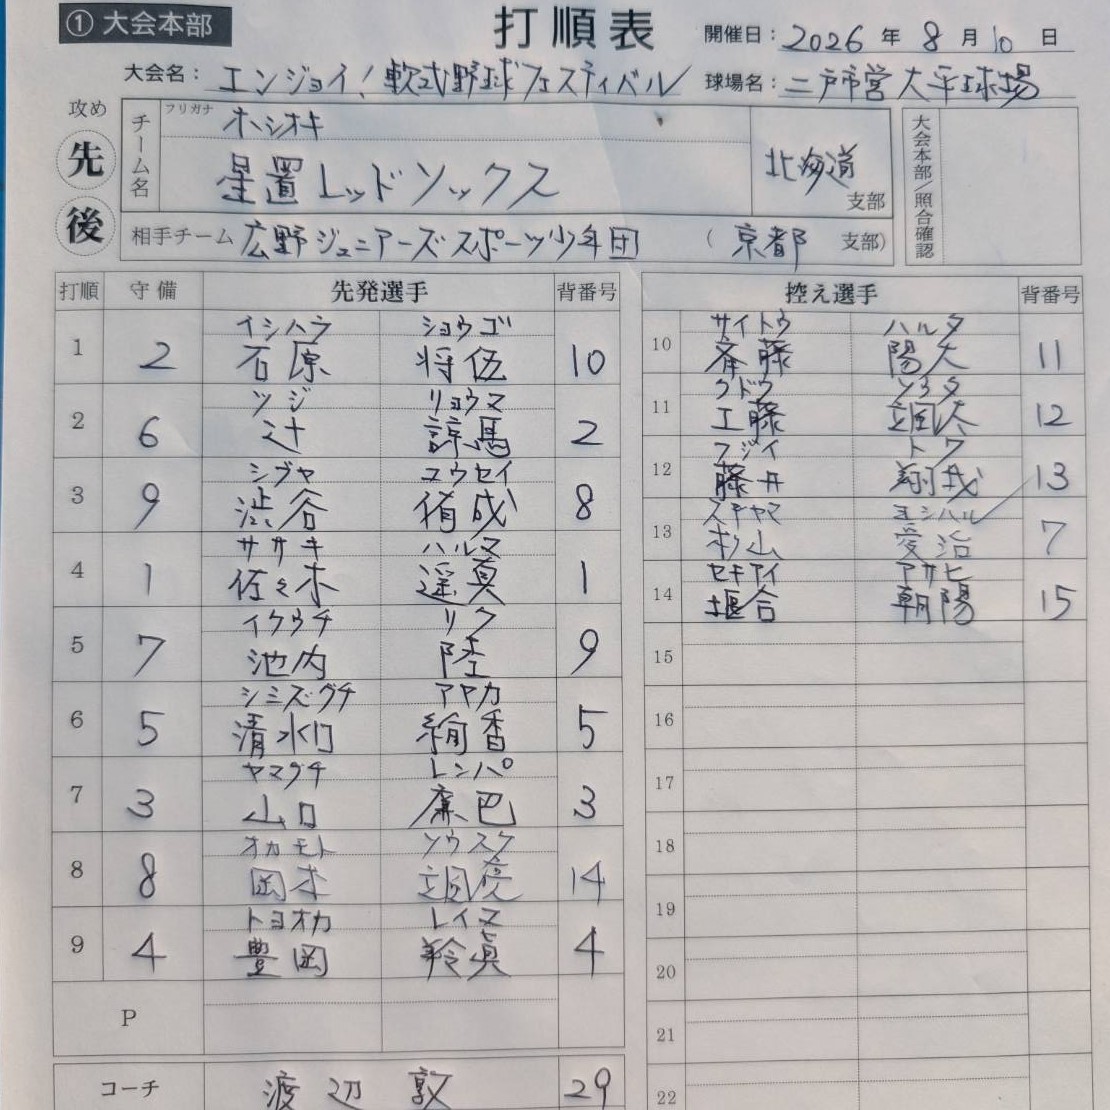 ① 大会本部
打順表
開催日: 2026 年 8 月 10 日
大会名: エンジョイ!軟式野球フェスティバル
球場名: 二戸市営大平球場
攻め
先
後
チーム名
フリガナ ホシオキ
星置レッドソックス
北海道 支部
大会本部/照合確認
相手チーム 広野ジュニアーズスポーツ少年団 (京都 支部)
打順 守備 先発選手 背番号
イシハラ ショウゴ
1 2 石原 将伍 10
ツジ リョウマ
2 6 辻 諒馬 2
シブヤ ユウセイ
3 9 渋谷 侑成 8
ササキ ハルマ
4 1 佐々木 遥真 1
イケウチ リク
5 7 池内 陸 9
シミズグチ アヤカ
6 5 清水口 絢香 5
ヤマグチ レンパ
7 3 山口 廉巴 3
オカモト ソウスケ
8 8 岡本 颯亮 14
トヨオカ レイマ
9 4 豊岡 羚眞 4
P
コーチ 渡辺 敦 29
控え選手 背番号
サイトウ ハルタ
10 斉藤 陽大 11
クドウ ソウタ
11 工藤 颯大 12
フジイ トワ
12 藤井 翔哉 13
スギヤマ ヨシハル
13 杉山 愛治 7
セキアイ アサヒ
14 堰合 朝陽 15
15
16
17
18
19
20
21
22